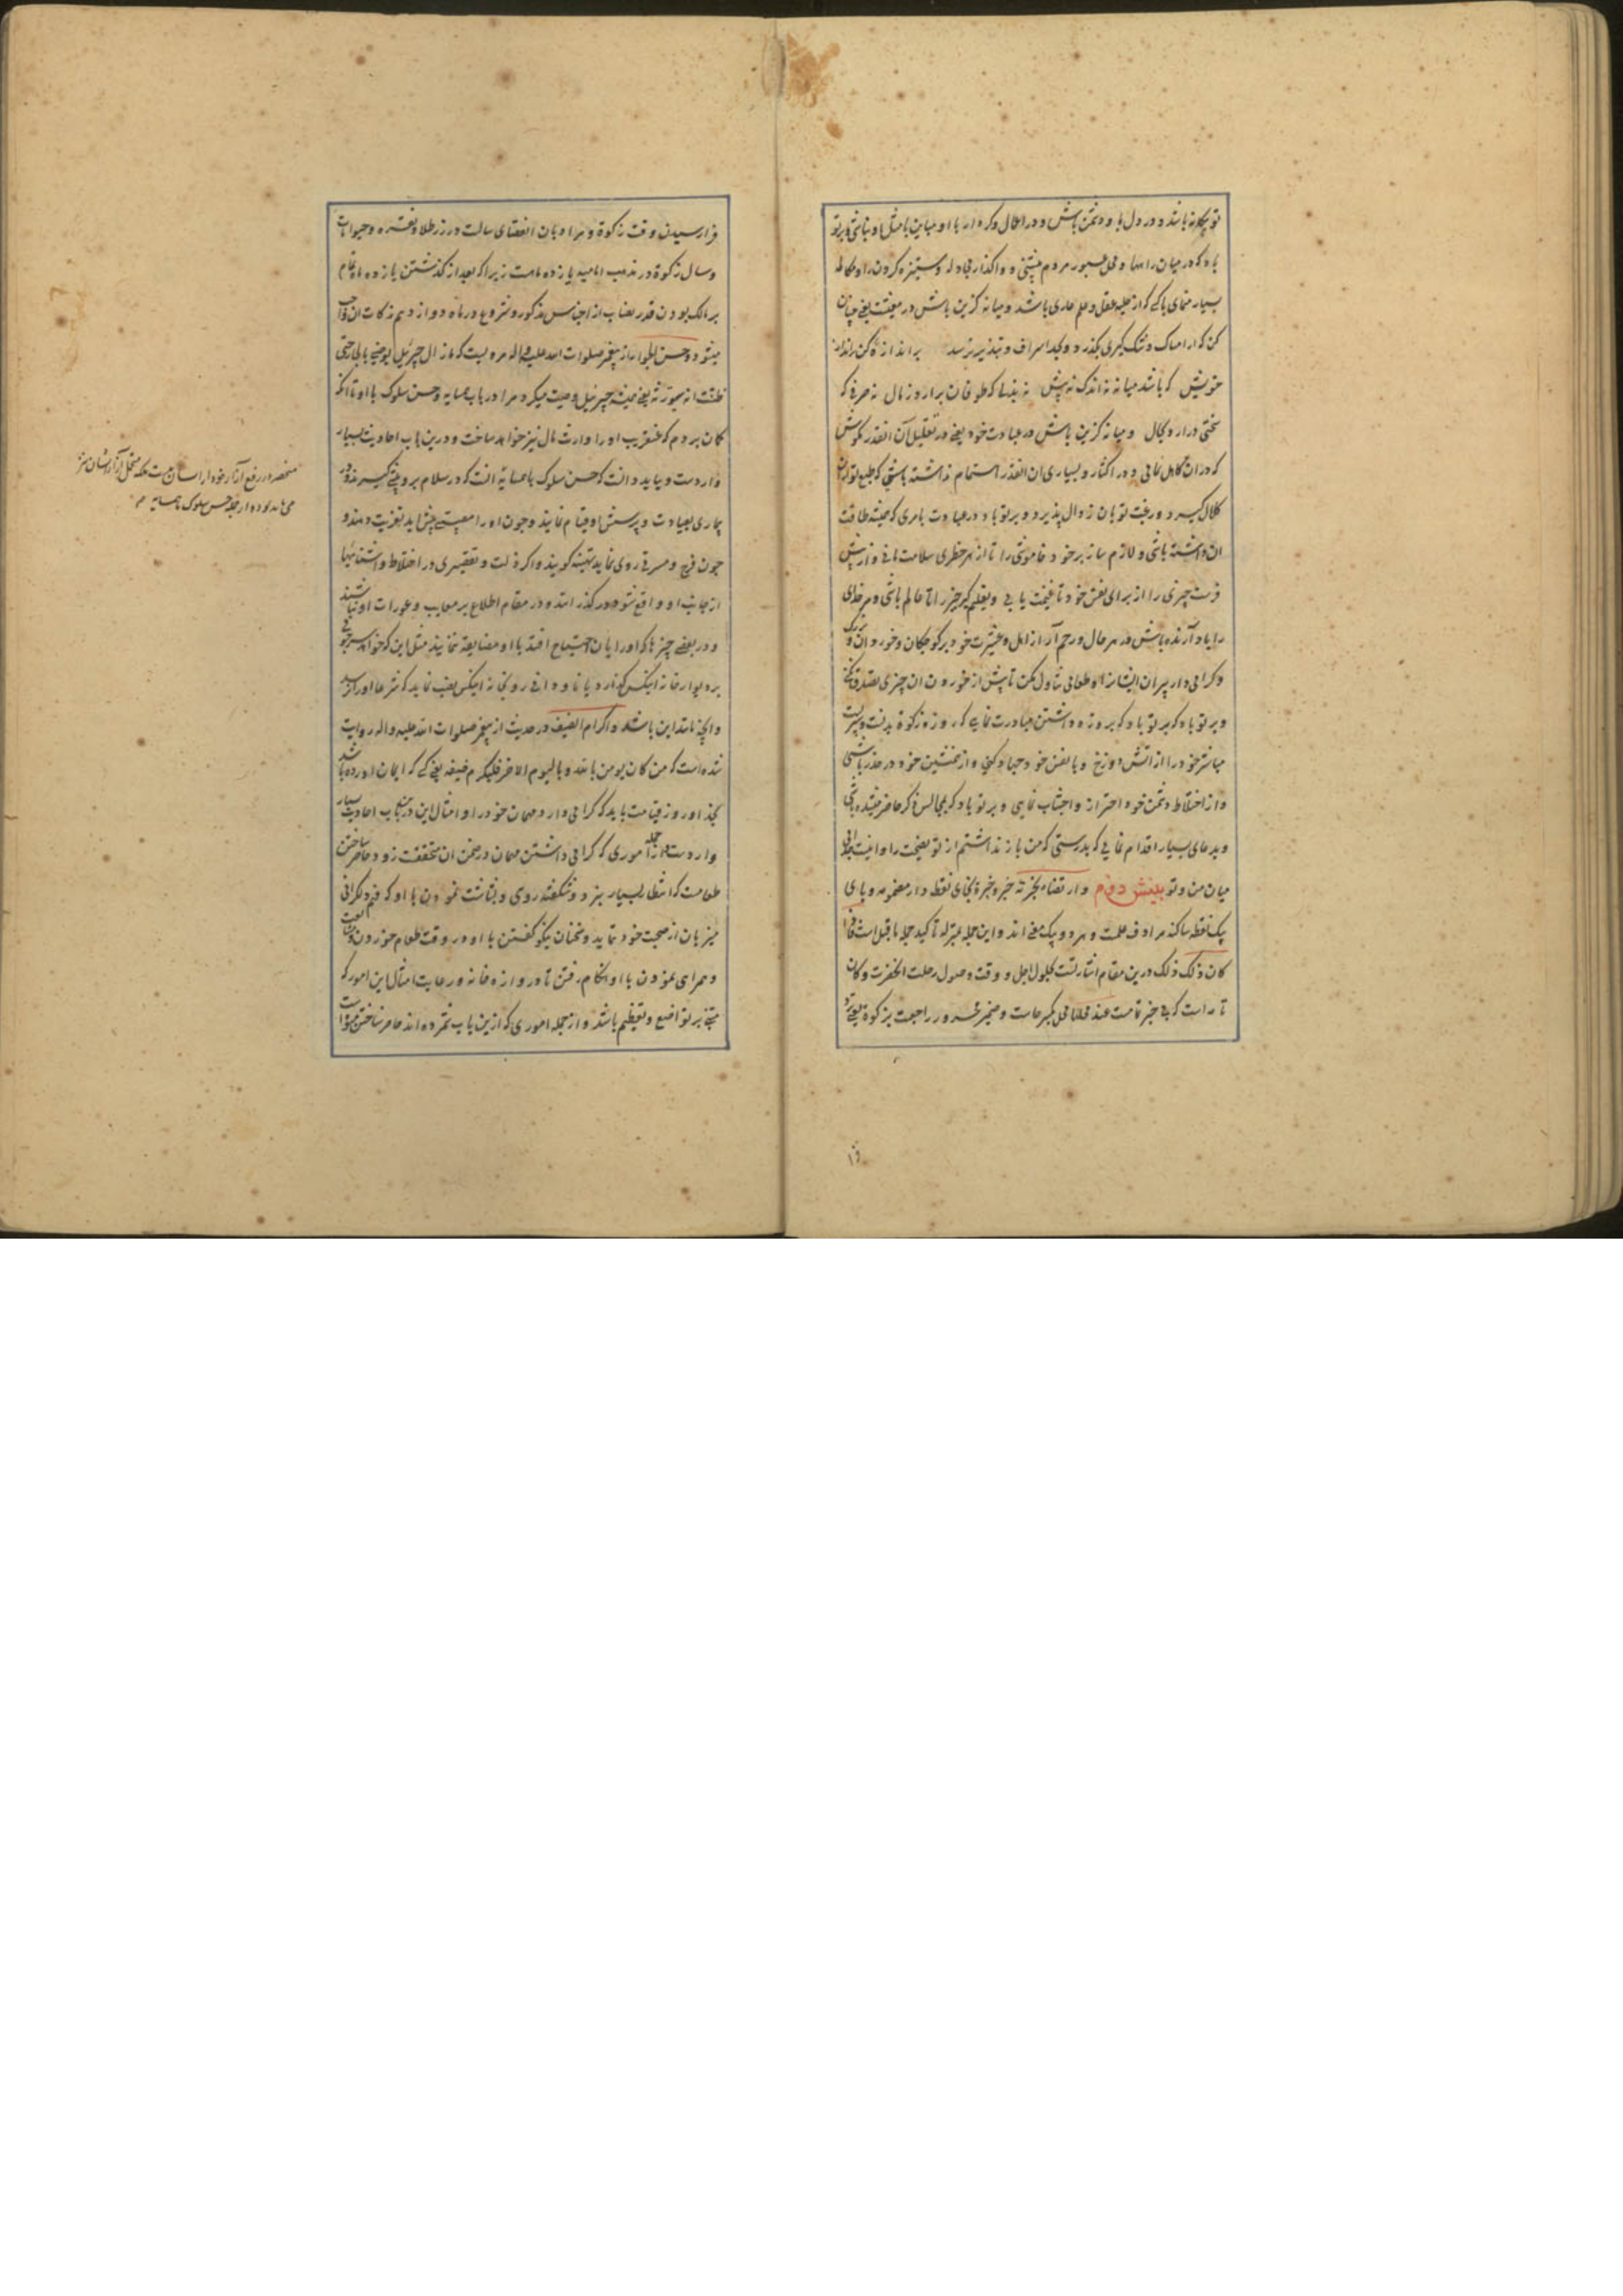 تو بیکانه باشد و در دل با و دشمن باش و در اعمال و کردار با او مباین تا مثل او نباشی و بر تو
باد که در میان راهها و محل عبور مردم ننشینی و واگذار مجادله و ستیزه کردن را و مکالمه
بسیار منمای با کسی که از حلیه عقل و علم عاری باشد و میانه گزین باش در معیشت یعنی چنان
کن که از امساک و تنک گیری بگذرد و بحد اسراف و تبذیر نرسد بر اندازه کن
خویش که باشد میانه نه اندک نه بیش نه بذلی که طوفان برارد ز مال نه صرفی که
سختی درارد بحال و میانه گزین باش در عبادت خود یعنی در تقلیل آن انقدر مکوش
که در ان کاهل نمائی و در اکثار و بسیاری ان انقدر اهتمام نداشته باشی که طبع تو از ان
کلال گیرد و رغبت تو بان زوال پذیرد و بر تو باد در عبادت بامری که همیشه طاقت
ان داشته باشی و لازم ساز بر خود خاموشی را تا از هر خطری سلامت مانی و از پیش
فرست چیزی را از برای نفس خود تا غنیمت یابی و تعلیم گیر خیر را تا عالم باشی و مر خدای
را یاد آرنده باش در هر حال و رحم آر از اهل و عشیرت خود بر کوچکان و خوردان
و گرامی دار پیران ایشان را و طعامی تناول مکن تا پیش از خوردن ان چیزی تصدق نکنی
و بر تو باد که بروزه داشتن مبادرت نمایی که روزه زکوة بدنست و سپریست
میانه خود را از اتش دوزخ و با نفس خود جهاد کنی و از همنشین خود در حذر باشی
و از اختلاط دشمن خود احتراز و اجتناب نمایی و بر تو باد که بمجالس ذکر حاضر میشده باشی
و بدعای بسیار اقدام نمایی که بدرستی که من باز نداشتم از تو نصیحت را و اینست جدائی
میان من و تو بینش دوم دار تقضاء بخبرته خبر و خبرة بخای نقطه دار مضمومه و بای
یک نقطه ساکنه مرادف علمت و هر دو بیک معنی اند و این جمله بمنزله تاکید جمله ماقبل است فاذا
کان ذلک ذلک درین مقام اشارتست بحلول اجل و وقت وصول رحلت انحضرت و کان
تامه است که بی خبر تمامست عند محلها محل بکسر حاست و ضمیر مجرور راجعست بزکوة یعنی نزد
فرا رسیدن وقت زکوة و مراد بان انقضای سالست در زر طلا و نقره و حیوانات
و سال زکوة در مذهب امامیه یازده ماهست زیرا که بعد از گذشتن یازده ماه تمام
بر مالک بودن قدر نصاب از اجناس مذکور و شروع در ماه دوازدهم زکات ان واجب
میشود و حسن الجوار از پیغمبر صلوات الله علیه و اله مرویست که ما زال جبرئیل یوصینی بالجار حتی
ظننت انه سیورثه یعنی همیشه جبرئیل وصیت میکرد مرا در باب همسایه و حسن سلوک با او تا انکه
گمان بردم که عنقریب او را وارث مال نیز خواهد ساخت و درین باب احادیث بسیار
واردست و بباید دانست که حسن سلوک با همسایه انست که در سلام برو پیشی گیرند و در
بیماری بعیادت و پرسش او قیام نمایند و چون او را مصیبتی پیش اید تعزیت دهند و
چون فرح و مسرتی روی نماید تهنیه گویند و اگر ذلت و تقصیری در اختلاط و اشنائیها
از جانب او واقع شود درگذرانند و در مقام اطلاع بر معایب و عورات او نباشند
و در بعضی چیزها که او را بان احتیاج افتد با او مضایقه ننمایند مثل این که خواهد سر چوبی
بر دیوار خانه اینکس گذارد یا ناودانی در وی خانه اینکس نصب نماید که شرعا او را رسد
و انچه مانند این باشد و اکرام الضیف در حدیث از پیغمبر صلوات الله علیه و اله روایت
شده است که من کان یومن بالله و بالیوم الاخر فلیکرم ضیفه یعنی کسی که ایمان اورده باشد
بخدا و روز قیامت باید که گرامی دارد مهمان خود را و امثال این درین باب احادیث بسیار
واردست و از جمله اموری که گرامی داشتن مهمان در ضمن ان متحققست زود حاضر ساختن
طعامست که انتظار بسیار نبرد و شکفته روی و بشاشت نمودن با او که فهم دلگرانی
میزبان از صحبت خود ننماید و سخنان نیکو گفتن با او در وقت طعام خوردن
و همراهی نمودن با او هنگام رفتن تا در دروازه خانه و رعایت امثال این امور که
منبی بر تواضع و تعظیم باشد و از جمله اموری که ازین باب شمرده اند حاضر ساختن میوه است
منحصر در رفع آزار خود از ایشان نیست بلکه تحمل آزار ایشان نیز
می باید نمود و از جمله حسن سلوک با همسایه